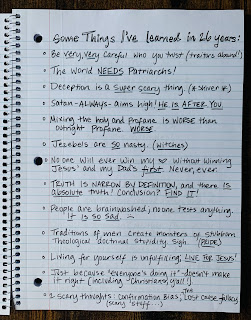 Some Things I've learned in 26 years:
• Be very, very careful who you trust (traitors abound!)
• The world NEEDS Patriarchs!
• Deception is a super scary thing. (*shiver*)
• Satan -ALWAYS- aims high! HE IS AFTER YOU.
• Mixing the holy and profane is worse than
outright profane. WORSE.
• Jezebels are so nasty. (Witches)
• No one will ever win my ♡ without winning
Jesus' and my Dad's first. Never, ever.
• TRUTH IS NARROW BY DEFINITION, and there IS
absolute truth! Conclusion? FIND IT!
• People are brainwashed; no one tests anything.
It is so sad.
• Traditions of men create monsters of stubborn
theological doctrinal stupidity. Sigh. (PRIDE)
• Living for yourself is unfulfilling, LIVE FOR JESUS!
• Just because "everyone's doing it" doesn't make
it right (including "Christians," y'all!)
• 2 scary thoughts: Confirmation Bias, Lost cause fallacy
(scary stuff...)